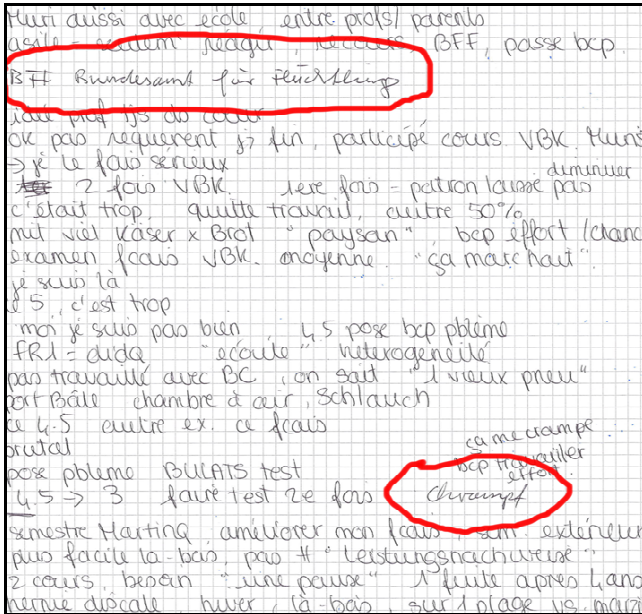 Muri aussi avec école entre profs/parents
asile = réagir, recours BFF, passe bcp.
BFF Bundesamt für Flüchtling
prof tjs du cœur
ok pas requérent j? fin, participé cours VBK. Muri
→ je le fais sérieux
diminuer
2 fois VBK. 1ere fois = patron laisse pas
c'était trop, quitte travail, autre 50%
mit viel Käser x Brot "paysan", bcp effort /chanc
examen fçais VBK. moyenne. "ça marchait".
je suis là
5, c'est trop
moi je suis pas bien, 4,5 pose bcp pblème
FR1 = dida "écoute" hétérogénéité
pas travaillé avec BC, on sait "1 vieux pneu"
port Bâle chambre à air, Schlauch
ce 4.5 autre ex. ce fçais
brutal
ça me crampe.
bcp travailler
effort.
pose pblème BULATS test
4,5 → 3 faire test 2e fois Chrampf
semestre Martina, améliorer mon fçais son extérieur
plus facile là-bas, pas # "Leistungsnachweise"
2 cours, besoin "une pause" 1 fuite après 4 ans
hernie discale hiver, là-bas, sur 1 plage vs. marc